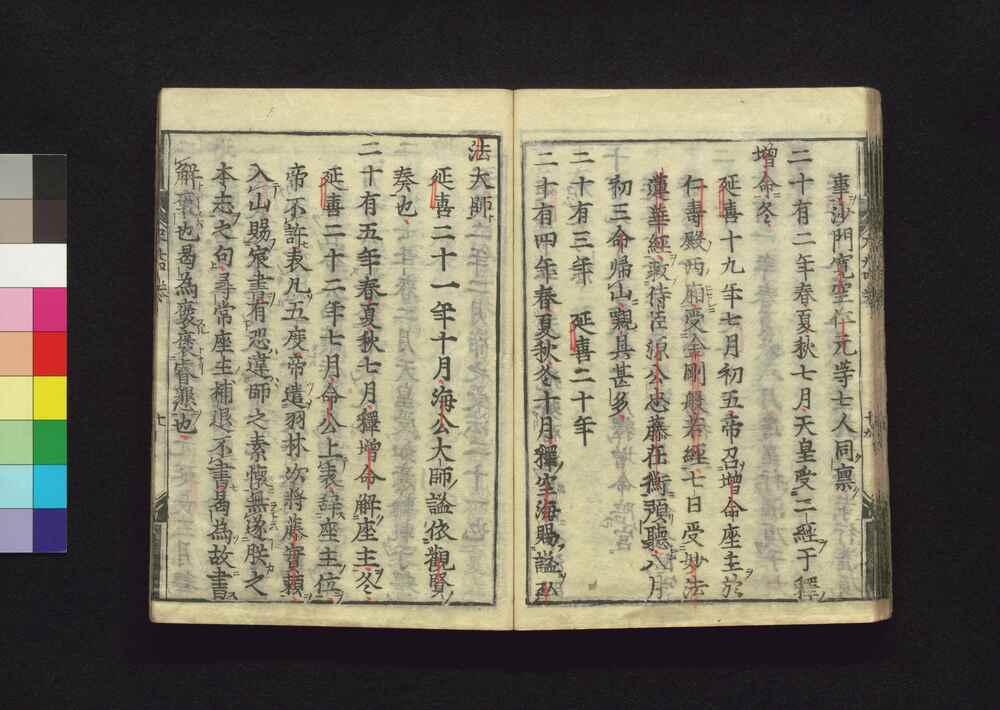 事沙門寛空在元等七人同稟
二十有二年春夏秋七月天皇受二經于釋
増命冬
延喜十九年七月初五帝召増命座主於
仁壽殿西廂受金剛般若經七日受妙法
蓮華經敕侍臣源公忠藤在衡預聽八月
初三命帰山襯具甚多
二十有三年 延喜二十年
二十有四年春夏秋冬十月釋空海賜謚弘
法大師
延喜二十一年十月海公大師謚依觀賢
奏也
二十有五年春夏秋七月釋増命解座主冬
延喜二十二年七月命公上表辞座主位
帝不許表凡五度帝遣羽林次將藤實頼
入山賜宸書有恐違師之素懐無遂朕之
本志之句尋常座主補退不書曷為故書
解褒也曷為褒褒睿漿也